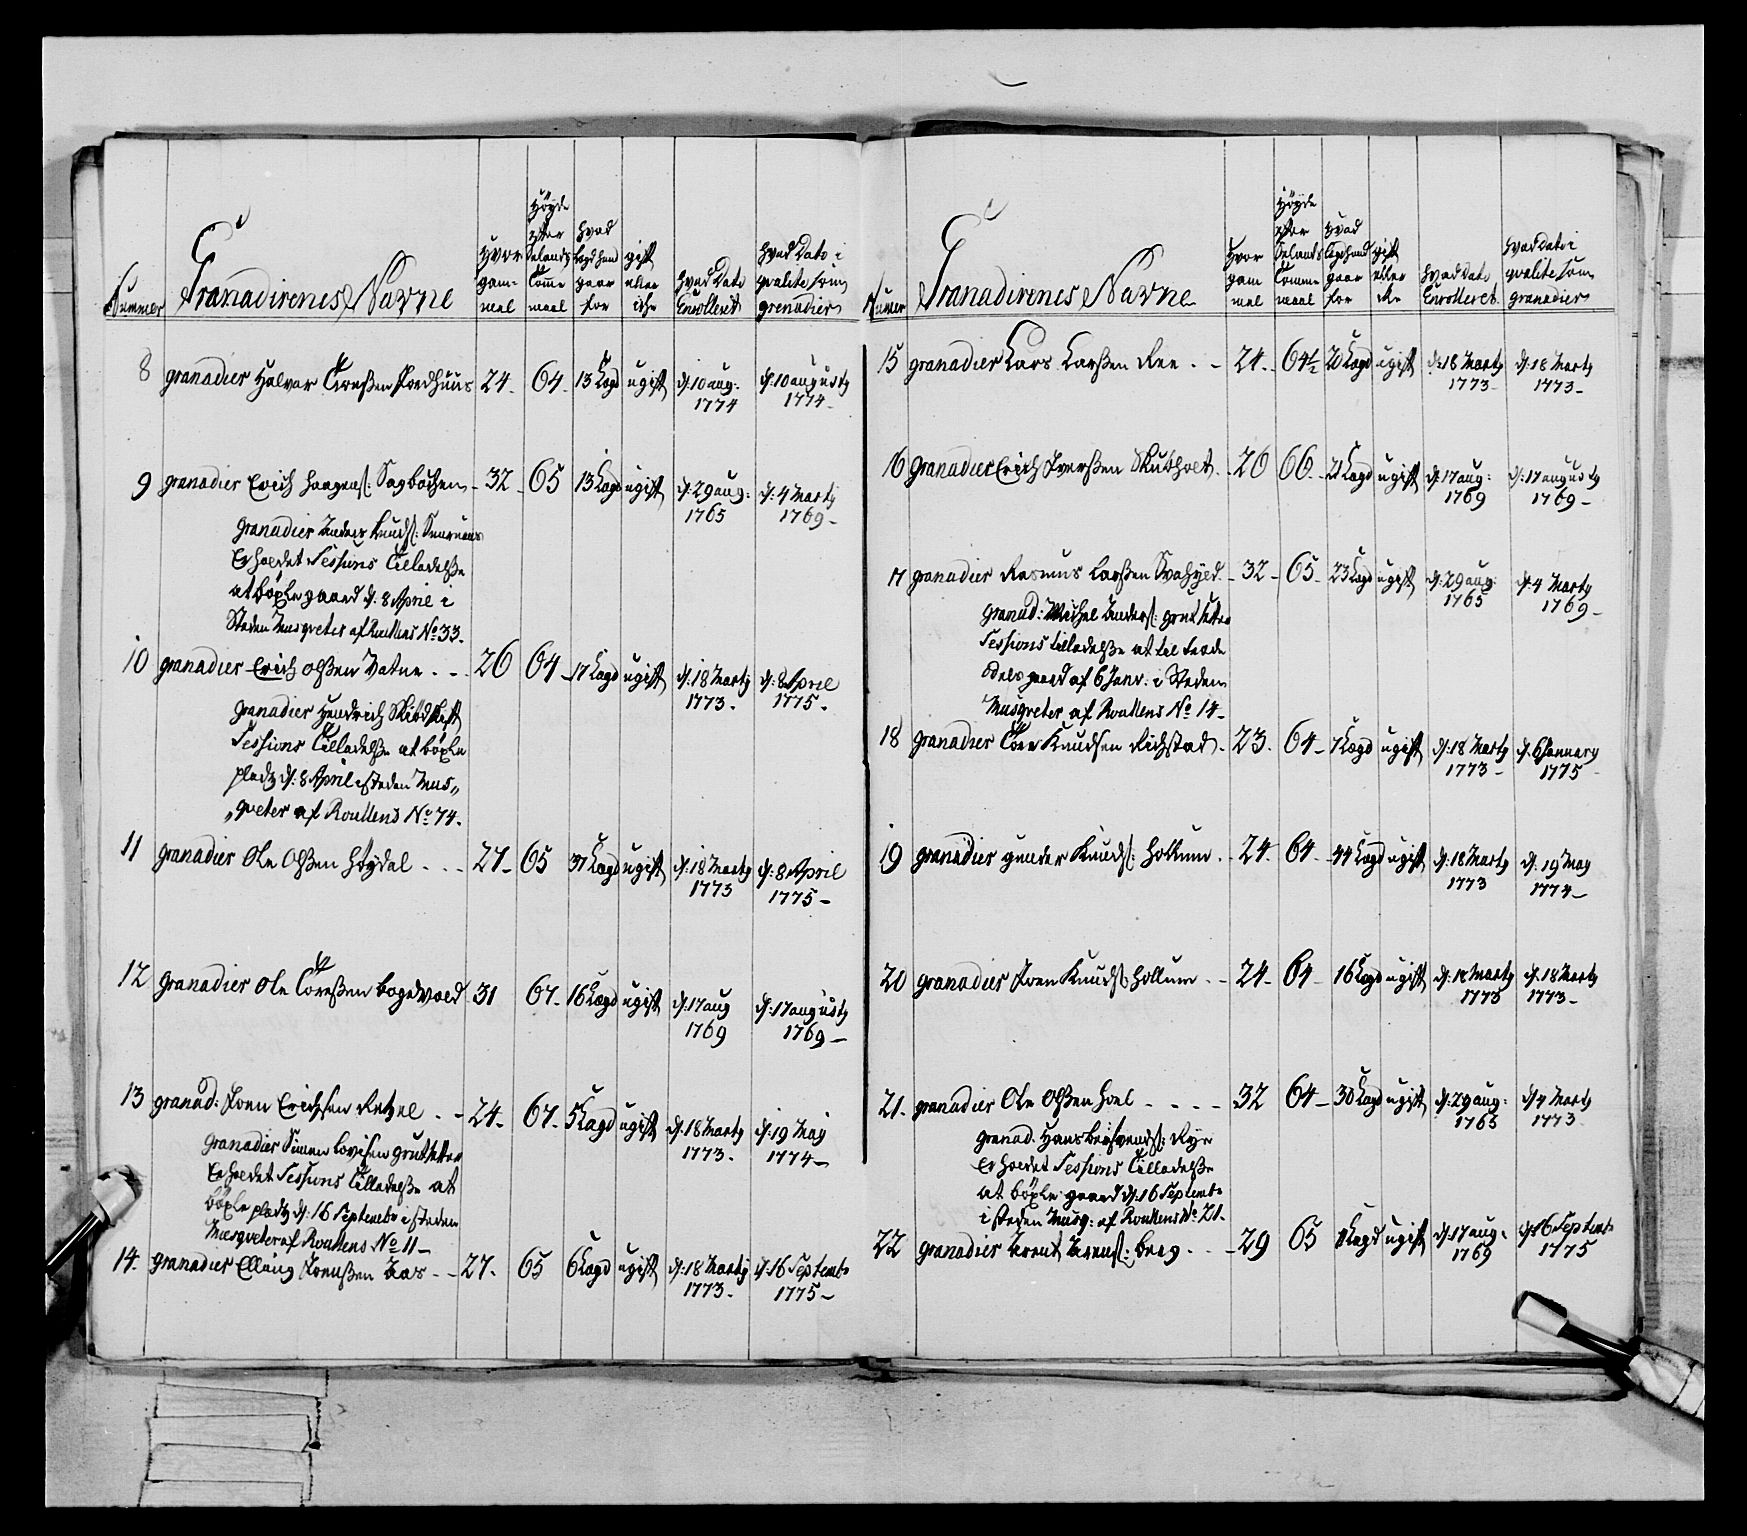 Nummer
Granadirenes Navne
Hvor gam= mel
Høyde efter Selands Tomme maal
hvad Lægd han gaar for
gift eller ickе
hvad Dato Enrolleret
hvad Dato i qvalite som grenadier
8 granadier Halvor Toreßen 24. 64. 13 Lægd ugift d: 10 aug: 1774 d: 10 augusty 1774
9 granadier Erich Haagens: Sagbachen 32 65 13 Lægd ugift d: 29 aug: 1765 d: 4 Marty 1769
granadier Anders Knuds:
Erholdet Sessions Tilladelße
at böxle gaard d: 8 April i
Steden Musqveter af Roullens No 33.
10 granadier Erich Olßen Vatne 26 64 17 Lægd ugift d: 18 Marty 1773. d: 8 April 1775.
granadier Hendrich
Sessions Tilladelße at böxle
pladz d: 8 April i steden Mus„
„qveter af Roullens No 74.
11 granadier Ole Olßen Höydal 27 65 37 Lægd ugift d: 18 Marty 1773 d: 8 April 1775
12 granadier Ole Toreßen Bogevold 31 67. 16 Lægd ugift d: 17 aug 1769 d: 17 augusty 1769
13 granad: Joen Erichsen Retzel 24. 67. 5 Lægd ugift d: 18 Marty 1773. d: 19 May 1774
granadier Simen
Erholdet Sessions Tilladelße at
böxle pladz d: 16 Septembr i steden
Musqveter af Roullens No 11
14. granadier Elling Joenßen Aas 27. 65 6 Lægd ugift d: 18 Marty 1773. d: 16 Septembr 1775
Numer
Granadirenes Navne
Hvor gam mel
Høyde efter Selands Tomme maal
hvad Lægd hand gaar for
gift eller icke
hvad Dato Enrolleret
hvad Dato i qvalite som granadier
15 granadier Lars Larßen Ree 24. 64½ 20 Lægd ugift d: 18 Marty 1773 d: 18 Marty 1773
16 granadier Erich Iverßen Skutholt 26 66 21 Lægd ugift d: 17 aug: 1769 d: 17 augusty 1769
17 granadier Rasmus Larßen 32 65 23 Lægd ugift d: 29 aug: 1765 d: 4 Marty 1769
Granad: Michel Anders:
Sessions tilladelße at til
odels gaard af 6 Janr: i Steden
Musqveter af Roullens No 14
18 granadier Tore Knudsen Richstad 23. 64 7 Lægd ugift d: 18 Marty 1773 d: 6 January 1775
19 granadier gunder Knuds: Hollum 24. 64 44 Lægd ugift d: 18 Marty 1773 d: 19 May 1774
20 granadier Joen Knuds: Hollum 24. 64 16 Lægd ugift d: 18 Marty 1773 d: 18 Marty 1773
21. granadier Ole Olßen Hoel 32 64 30 Lægd ugift d: 29 aug: 1765 d: 4 Marty 1773
granad. Hans
Erholdet Sessions Tilladelße
at böxle gaard d: 16 Septembr
i steden Musq: af Roullens No 21.
22 granadier Arent Arens: Berg 29 65 Lægd ugift d: 17 aug. 1769 d: 16 Septembr 1775